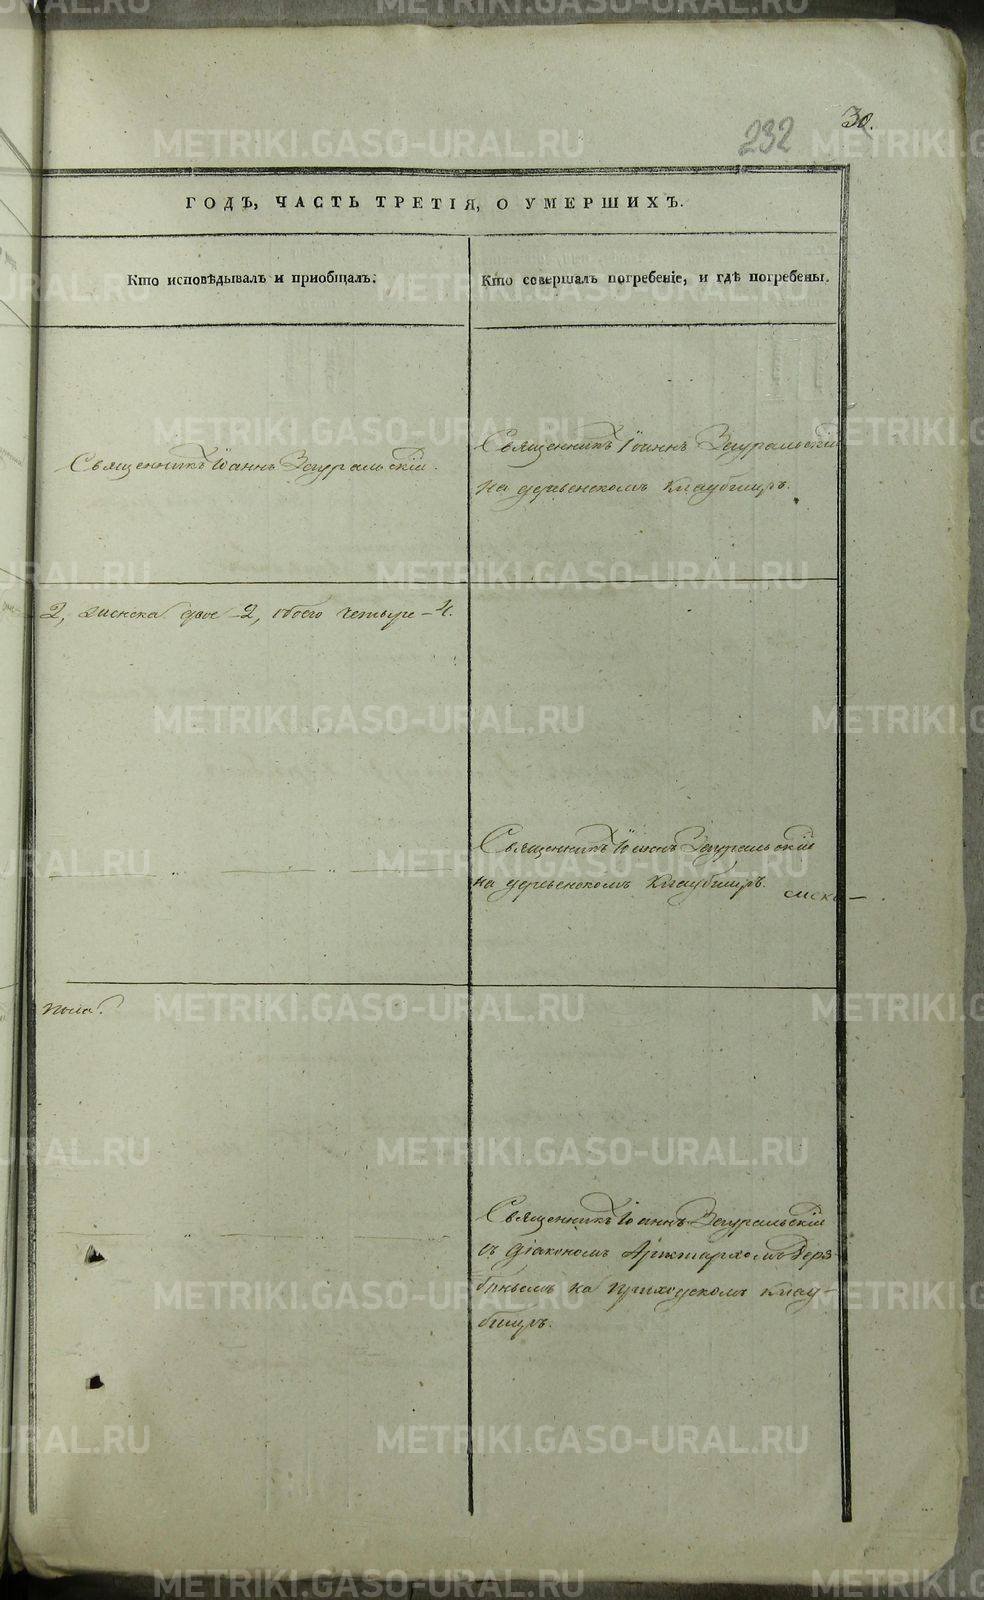 232
30.
ГОДЪ, ЧАСТЬ ТРЕТІЯ, О УМЕРШИХЪ.
Кто исповѣдывалъ и приобщалъ.
Кто совершалъ погребеніе, и гдѣ погребены.
Священникъ Іоаннъ Зауральскій.
Священникъ Іоаннъ Зауральскій
на деревенскомъ кладбищѣ.
2, женска двое - 2, обоего четыре - 4.
Священникъ Іоаннъ Зауральскій
на деревенскомъ кладбищѣ.
пола.
Священникъ Іоаннъ Зауральскій
съ діакономъ Аристархомъ
на приходскомъ клад-
бищѣ.
METRIKI.GASO-URAL.RU